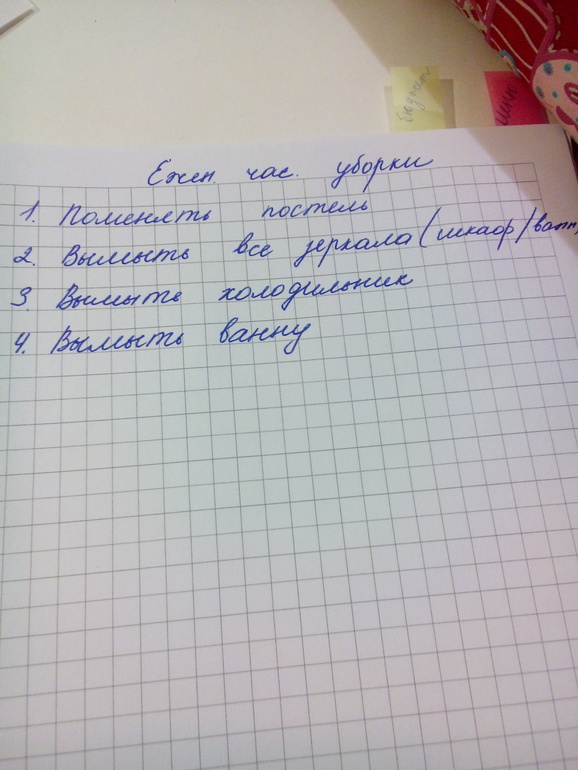 бюджет
меню
Ежен. час. уборки
1. Поменять постель
2. Вымыть все зеркала (шкаф/ванн
3. Вымыть холодильник
4. Вымыть ванну